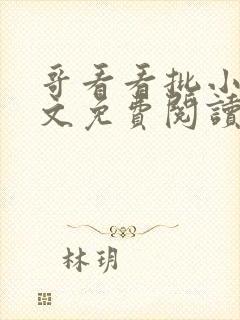 哥看看批小
文免費閱讀
林玥